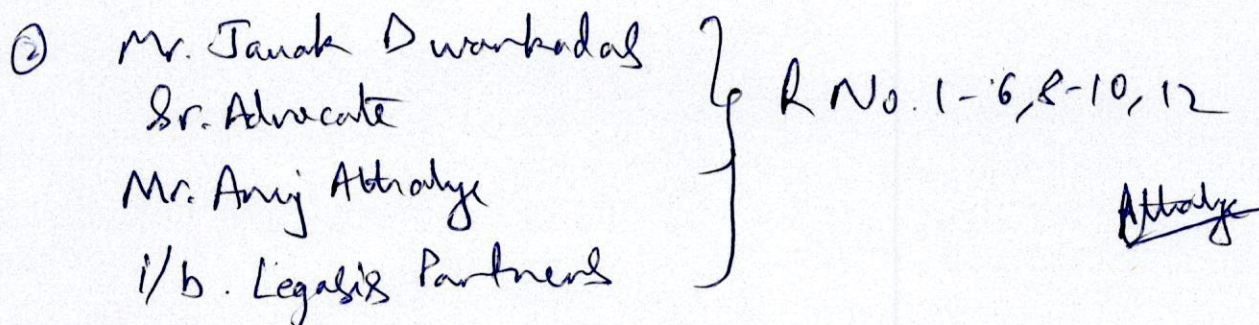 ② Mr. Janak Dwarkadas
Sr. Advocate
Mr. Anuj Athalye
i/b. Legasis Partners
R No. 1-6, 8-10, 12
Athalye